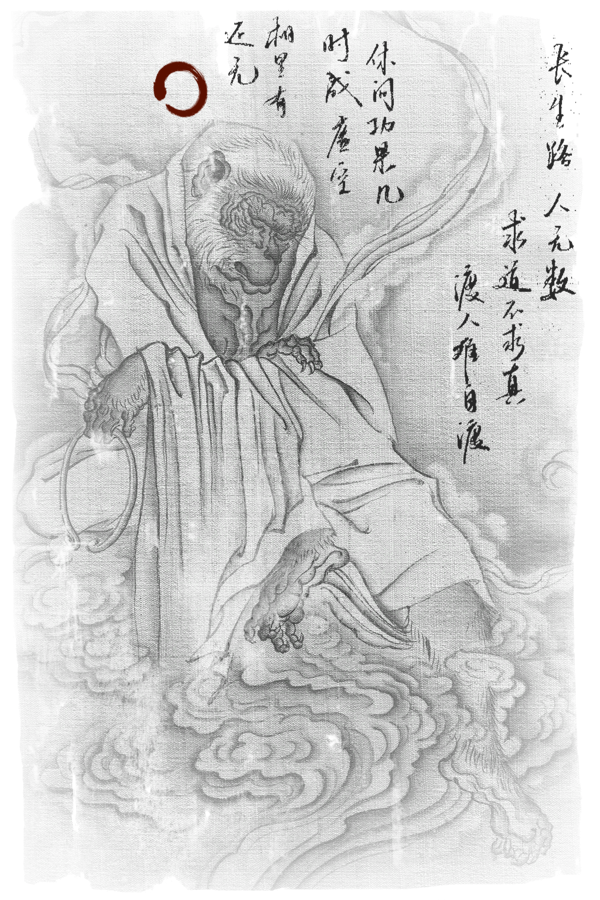 长生路 人无数
求道不求真
渡人难自渡
休问功果几
时成虚空
相里有
还无